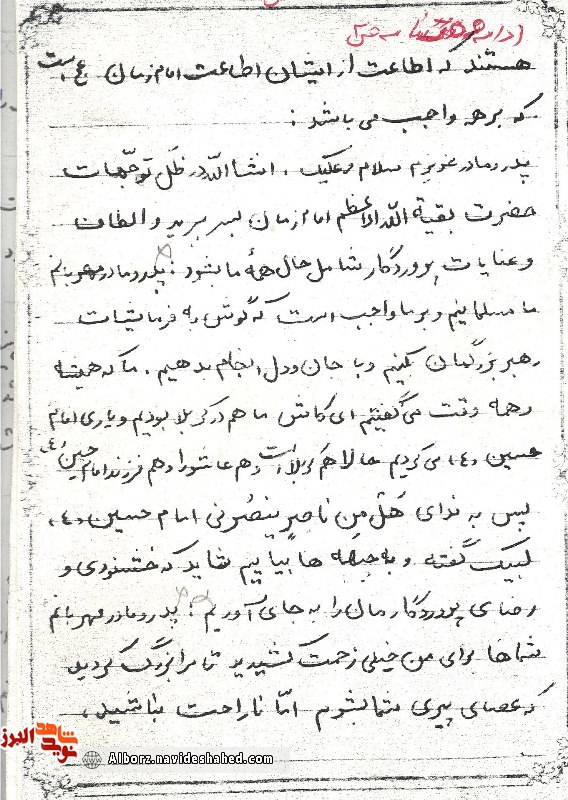 ادامه
هستند که اطاعت از ایشان اطاعت امام زمان عج است
که بر همه واجب می باشد :
پدر و مادر عزیزم سلام علیک . انشاالله در ظل توجهات
حضرت بقیة الله الاعظم امام زمان بسر برید و الطاف
و عنایات پروردگار شامل حال همهٔ ما بشود : پدر و مادر مهربانم
ما مسلمانیم و بر ما واجب است که گوش به فرمایشات
رهبر بزرگمان بکنیم و با جان و دل انجام بدهیم . ما که همیشه
و همه وقت می گفتیم ای کاش ما هم در کربلا بودیم و یاری امام
حسین (ع) می کردیم حالا هم کربلا است و هم عاشورا و هم فرزند امام حسین (ع)
پس به ندای هَل مِن ناصرٍ ینصُرنی امام حسین (ع)
لبیک گفته و به جبهه ها بیاییم شاید که خشنودی و
رضای پروردگارمان را به جای آوریم : پدر و مادر مهربانم
شماها برای من خیلی زحمت کشیدید تا مرا بزرگ کردید
که عصای پیری شما بشوم اما ناراحت نباشید
نوید شاهد البرز
Alborz.navideshahed.com